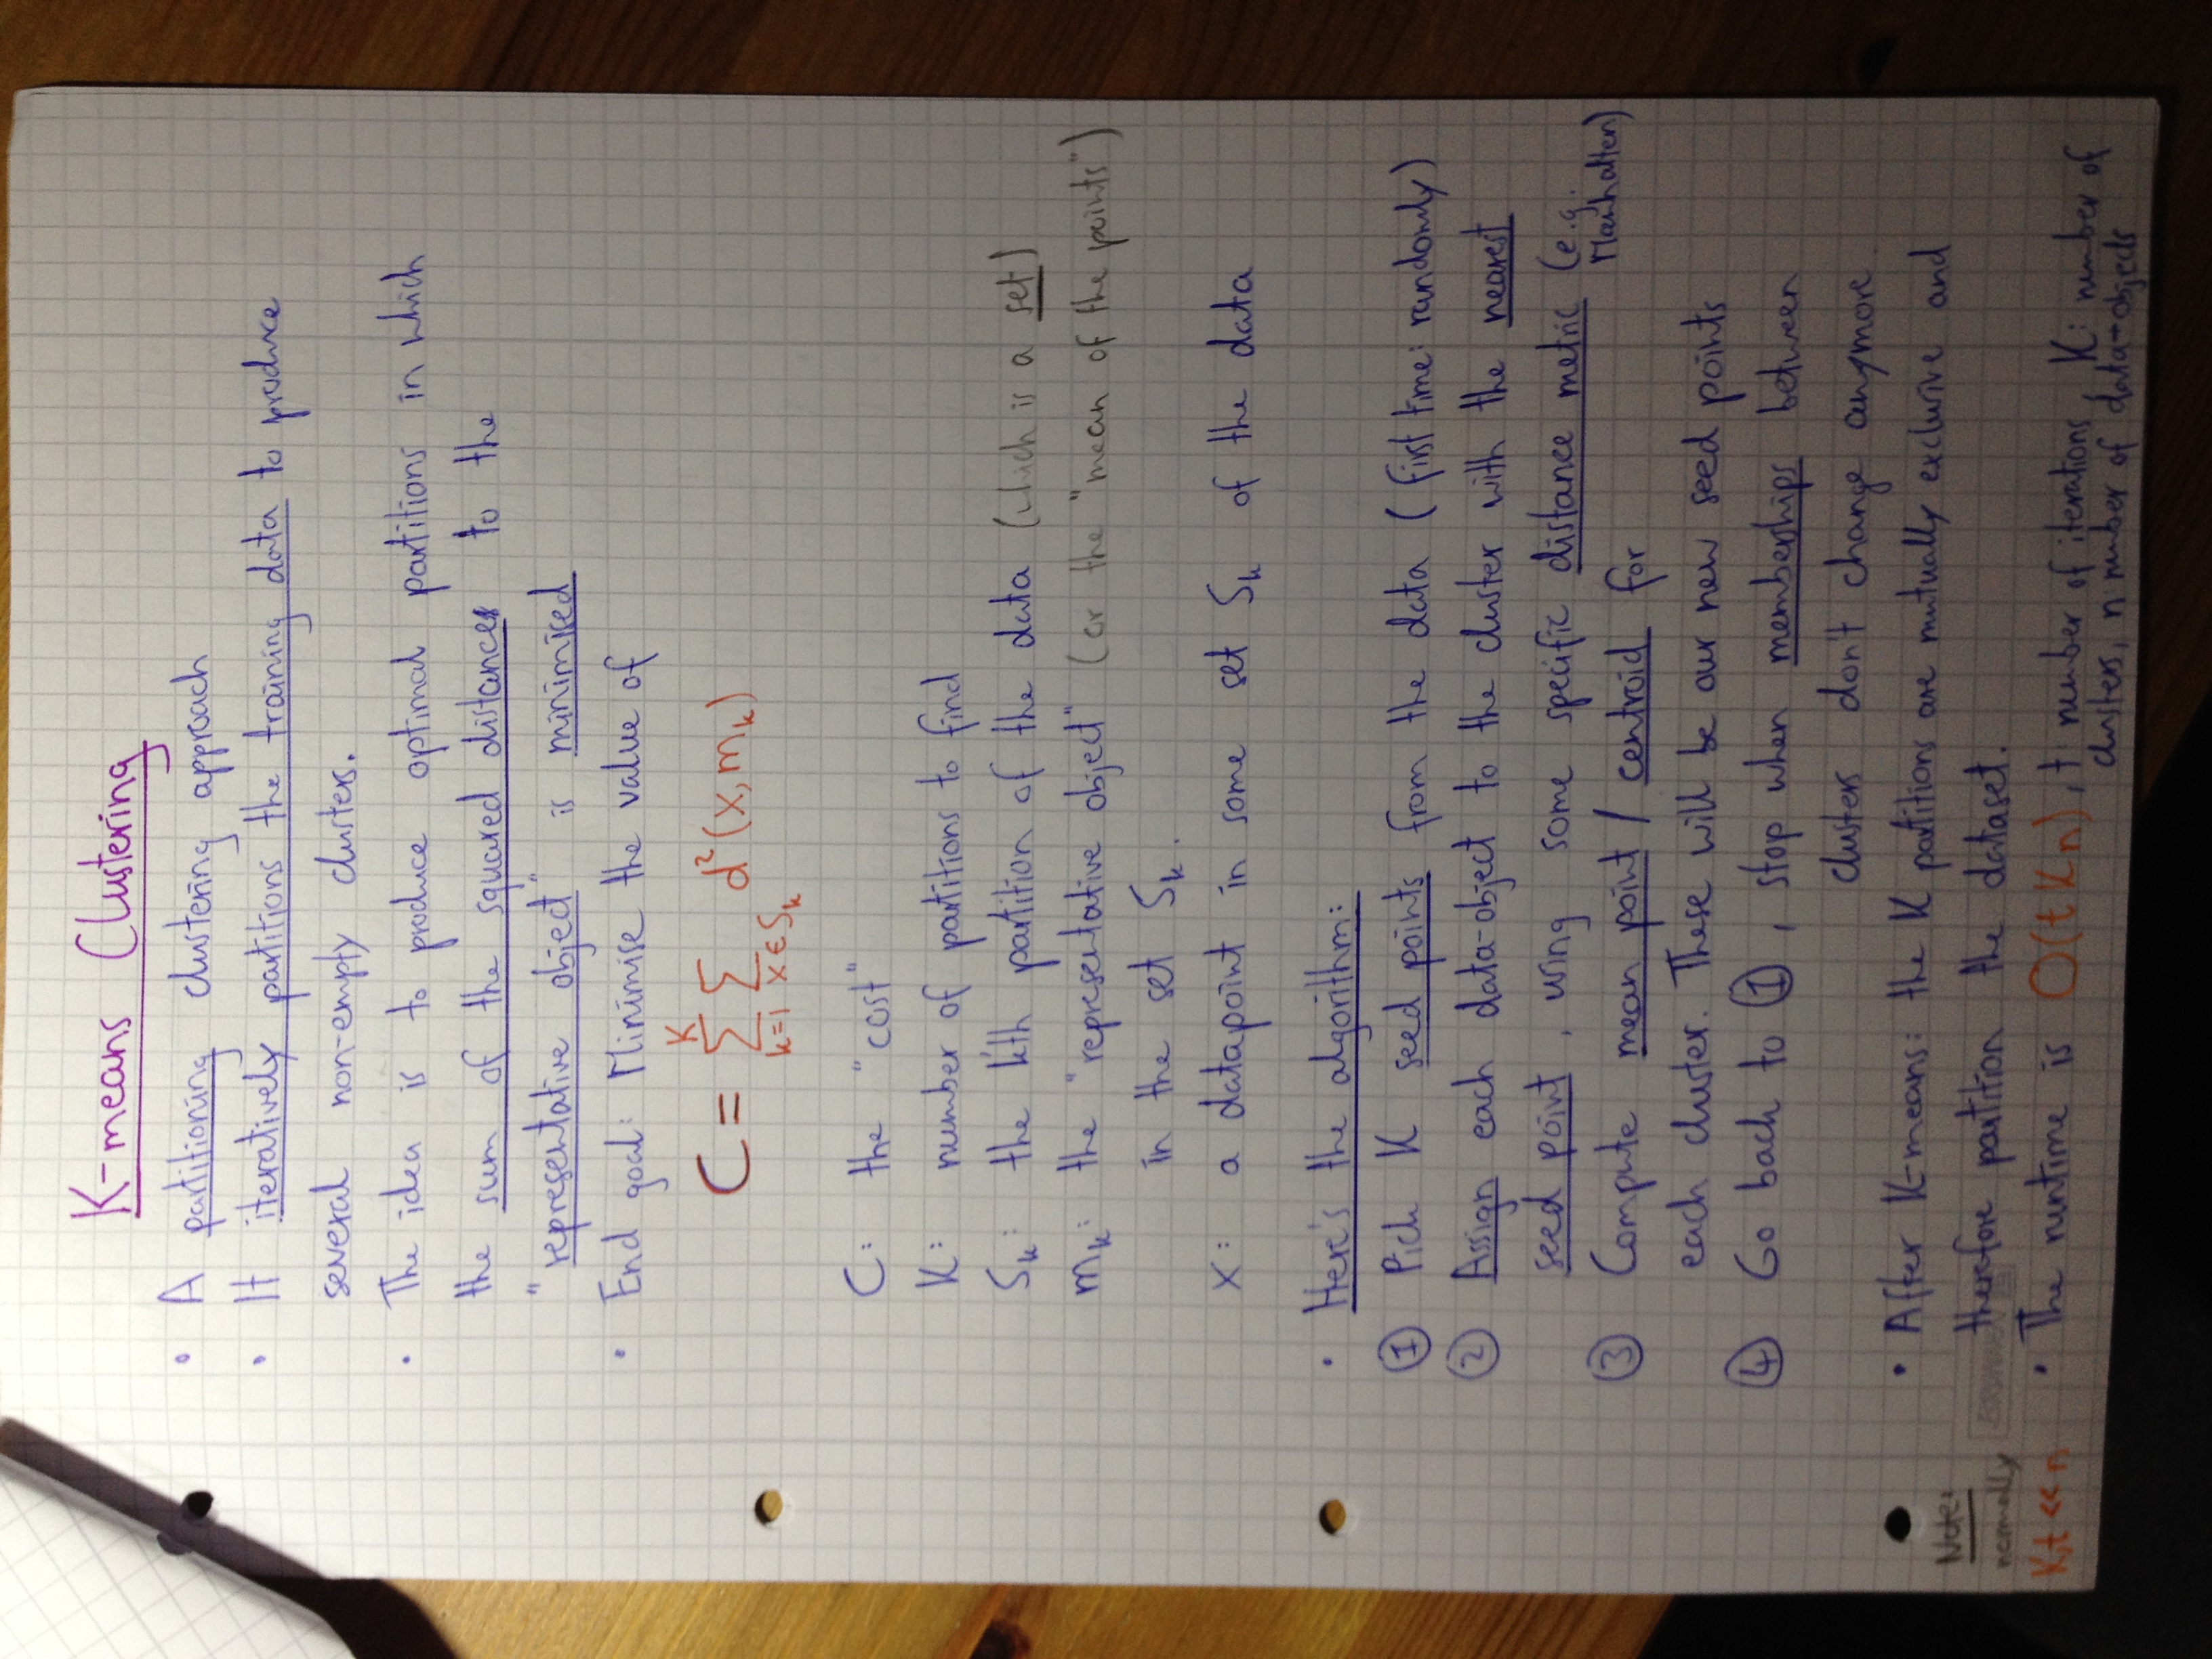 K-means Clustering
• A partitioning clustering approach
• It iteratively partitions the training data to produce
several non-empty clusters.
• The idea is to produce optimal partitions in which
the sum of the squared distances to the
"representative object" is minimised
• End goal: Minimise the value of
C = ∑_{k=1}^{K} ∑_{x∈S_k} d²(x, m_k)
C: the "cost"
K: number of partitions to find
S_k: the k'th partition of the data (which is a set)
m_k: the "representative object" (or the "mean of the points")
in the set S_k.
x: a datapoint in some set S_k of the data
• Here's the algorithm:
① Pick K seed points from the data (first time: randomly)
② Assign each data-object to the cluster with the nearest
seed point, using some specific distance metric (e.g.
Manhatten)
③ Compute mean point / centroid for
each cluster. These will be our new seed points
④ Go back to ①, stop when memberships between
clusters don't change anymore.
• After K-means: the K partitions are mutually exclusive and
therefore partition the dataset.
• The runtime is O(tKn), t: number of iterations, K: number of
clusters, n: number of data-objects
Note:
normally
K,t << n